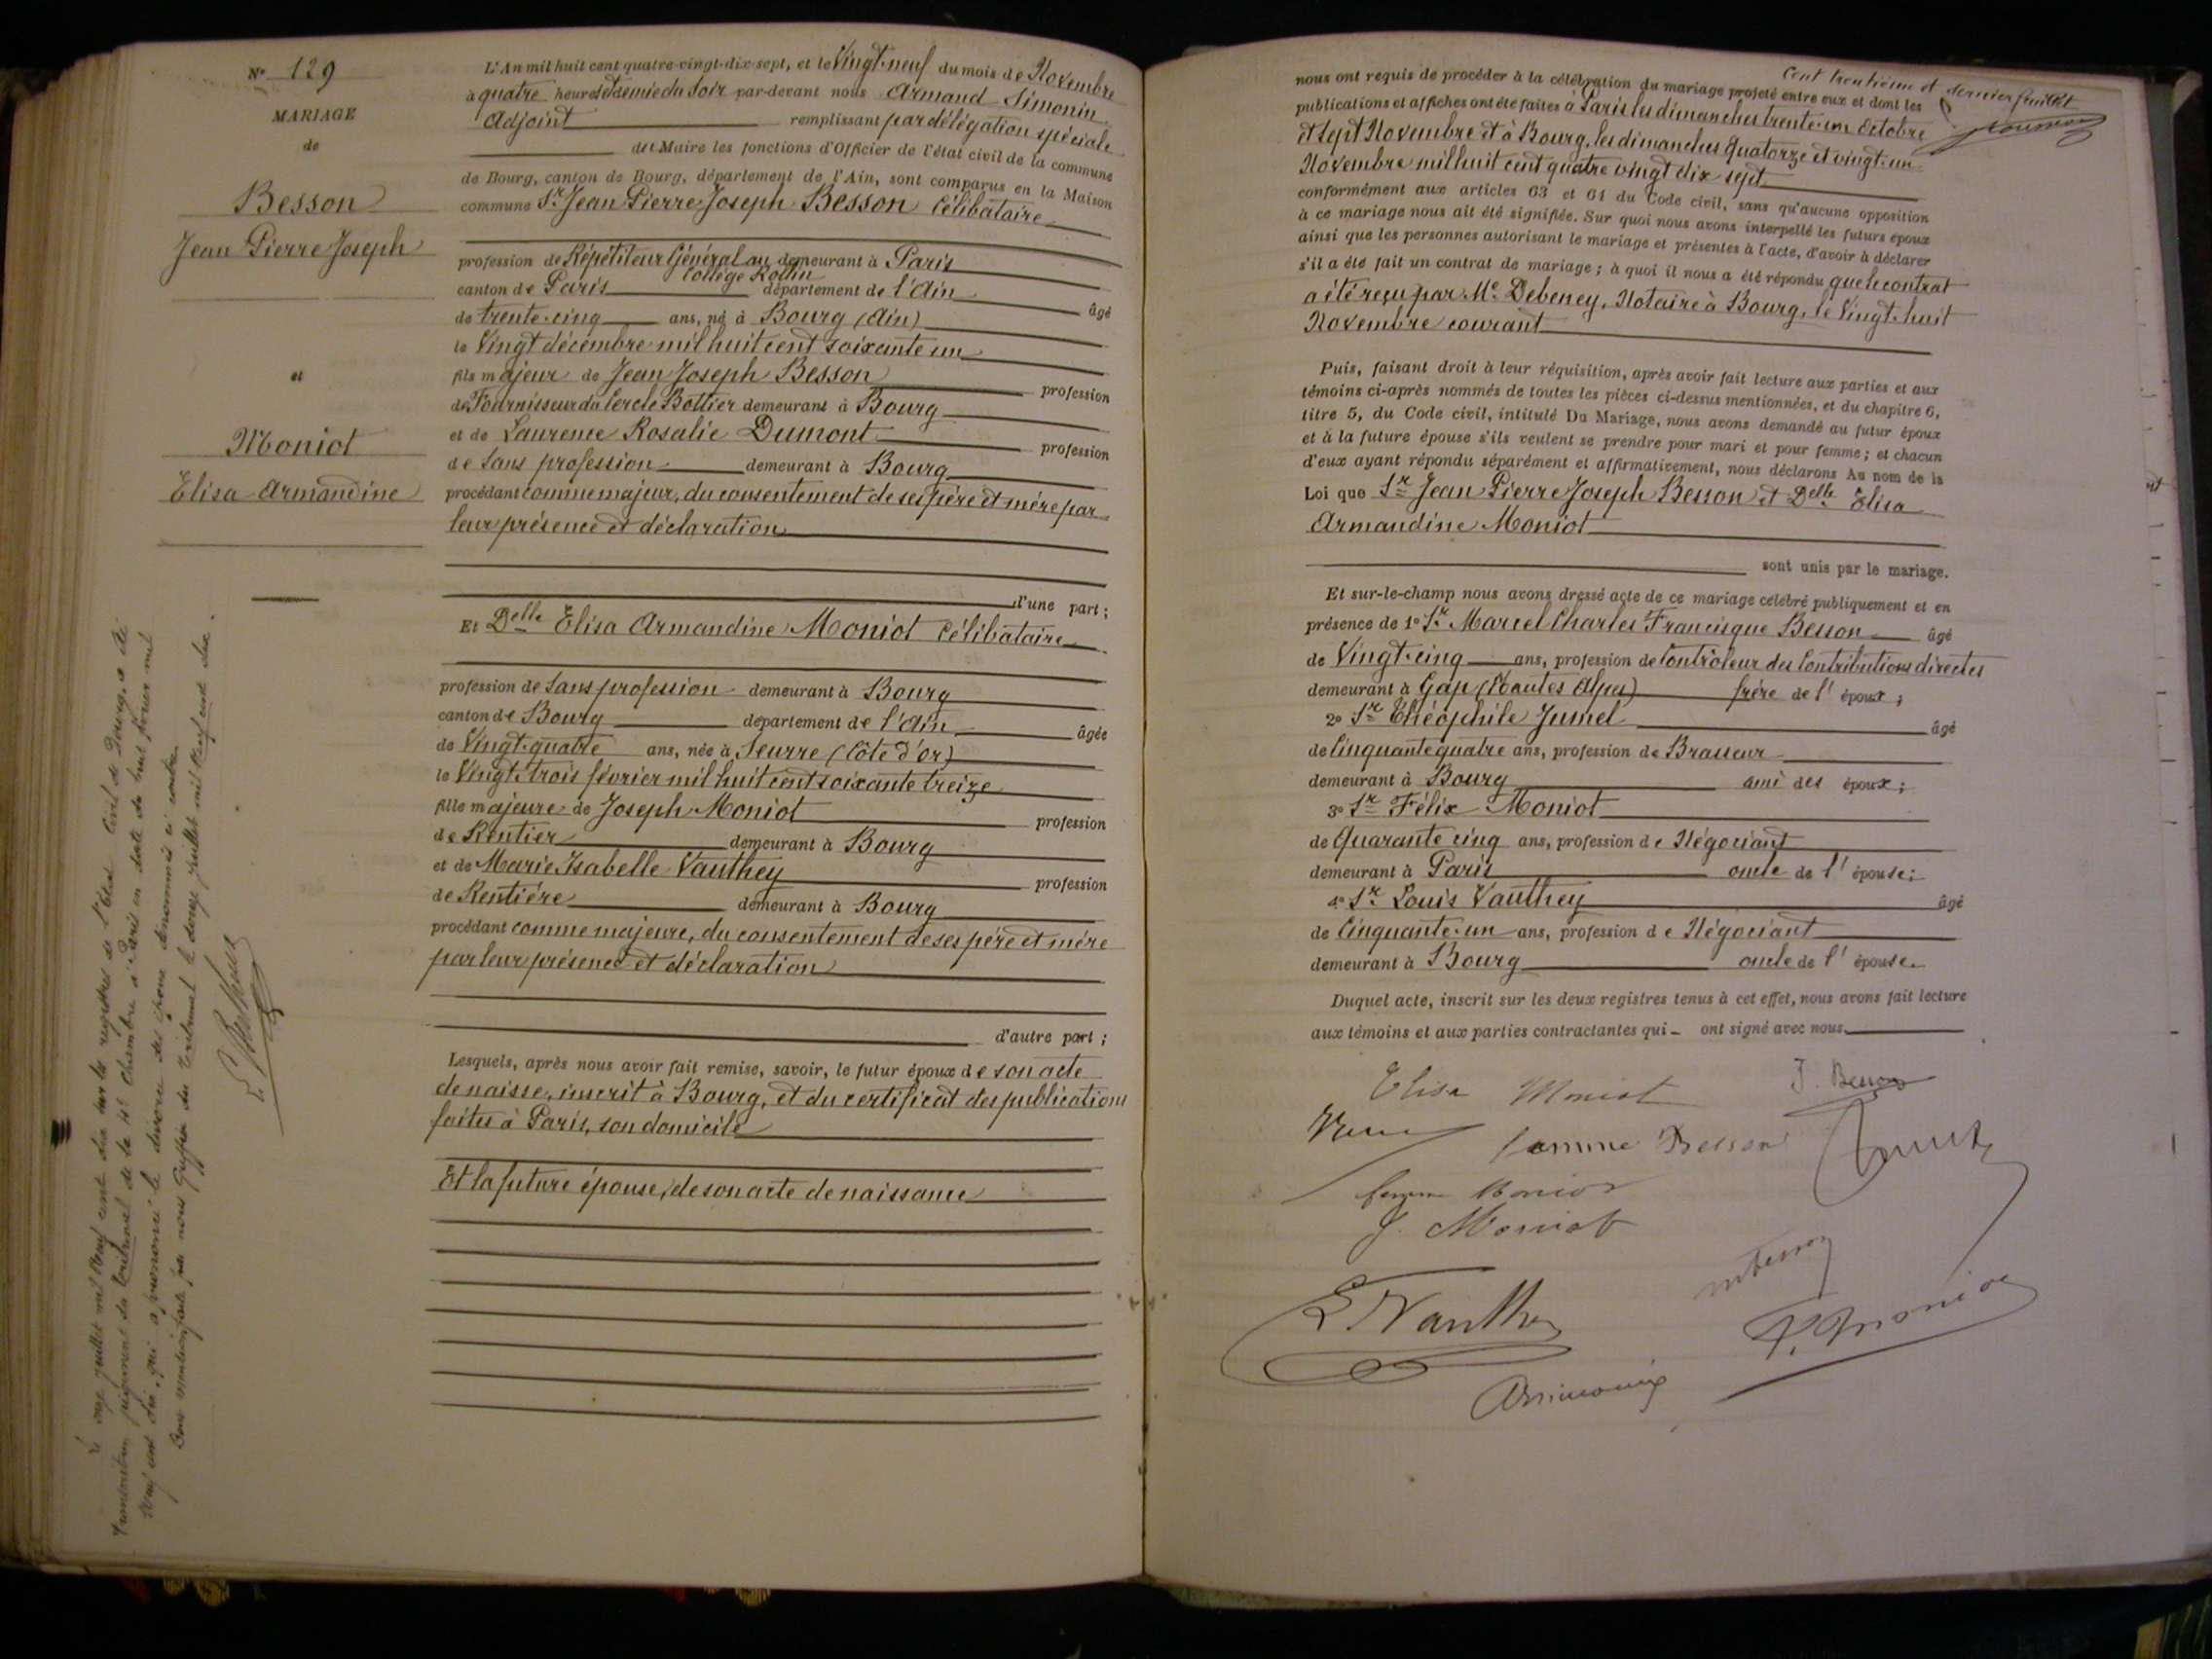 N° 129
MARIAGE
de
Besson
Jean Pierre Joseph
et
Moniot
Elisa Armandine
Le onze juillet mil neuf cent dix sur les registres de l'Etat Civil de Bourg, a été
transcrit un jugement du tribunal de la 4e Chambre à Paris en date du huit février mil
neuf cent dix, qui a prononcé le divorce des époux dénommés ci contre.
Dont mention faite par nous Greffier du Tribunal le douze juillet mil neuf cent dix.
L'An mil huit cent quatre-vingt-dix-sept, et le Vingt-neuf du mois de Novembre
à quatre heures et demie du soir par-devant nous Armand Simonin
Adjoint remplissant par délégation spéciale
du Maire les fonctions d'Officier de l'état civil de la commune
de Bourg, canton de Bourg, département de l'Ain, sont comparus en la Maison
commune Sr Jean Pierre Joseph Besson Célibataire
profession de Répétiteur Général au demeurant à Paris
Collège Rollin
canton de Paris département de l'Ain
âgé
de trente-cinq ans, né à Bourg (Ain)
le Vingt décembre mil huit cent soixante un
fils majeur de Jean Joseph Besson profession
de Fournisseur du Cercle Bottier demeurant à Bourg
et de Laurence Rosalie Dumont profession
de Sans profession demeurant à Bourg
procédant comme majeur, du consentement de ses père et mère par
leur présence et déclaration
d'une part;
Et Delle Elisa Armandine Moniot Célibataire
profession de Sans profession demeurant à Bourg
canton de Bourg département de l'Ain âgée
de Vingt-quatre ans, née à Seurre (Côte d'or)
le Vingt-trois février mil huit cent soixante treize
fille majeure de Joseph Moniot profession
de Rentier demeurant à Bourg
et de Marie Isabelle Vauthey profession
de Rentière demeurant à Bourg
procédant comme majeure, du consentement de ses père et mère
par leur présence et déclaration
d'autre part;
Lesquels, après nous avoir fait remise, savoir, le futur époux de son acte
de naisse, inscrit à Bourg, et du certificat des publications
faites à Paris, son domicile
Et la future épouse, de son acte de naissance
Cent trentième et dernier feuillet
nous ont requis de procéder à la célébration du mariage projeté entre eux et dont les
publications et affiches ont été faites à Paris les dimanches trente-un Octobre
et sept Novembre et à Bourg, les dimanches quatorze et vingt-un
Novembre mil huit cent quatre vingt dix sept
conformément aux articles 63 et 64 du Code civil, sans qu'aucune opposition
à ce mariage nous ait été signifiée. Sur quoi nous avons interpellé les futurs époux
ainsi que les personnes autorisant le mariage et présentes à l'acte, d'avoir à déclarer
s'il a été fait un contrat de mariage; à quoi il nous a été répondu que le contrat
a été reçu par Me Debeney, Notaire à Bourg, le Vingt-huit
Novembre courant
Puis, faisant droit à leur réquisition, après avoir fait lecture aux parties et aux
témoins ci-après nommés de toutes les pièces ci-dessus mentionnées, et du chapitre 6,
titre 5, du Code civil, intitulé Du Mariage, nous avons demandé au futur époux
et à la future épouse s'ils veulent se prendre pour mari et pour femme; et chacun
d'eux ayant répondu séparément et affirmativement, nous déclarons Au nom de la
Loi que Sr Jean Pierre Joseph Besson et Delle Elisa
Armandine Moniot
sont unis par le mariage.
Et sur-le-champ nous avons dressé acte de ce mariage célébré publiquement et en
présence de 1° Sr Marcel Charles Francisque Besson âgé
de Vingt-cinq ans, profession de Contrôleur des Contributions directes
demeurant à Gap (Hautes Alpes) frère de l'époux;
2° Sr Théophile Jumel âgé
de Cinquante quatre ans, profession de Brasseur
demeurant à Bourg ami des époux;
3° Sr Félix Moniot
de Quarante cinq ans, profession de Négociant
demeurant à Paris oncle de l'épouse;
4° Sr Louis Vauthey âgé
de Cinquante-un ans, profession de Négociant
demeurant à Bourg oncle de l'épouse.
Duquel acte, inscrit sur les deux registres tenus à cet effet, nous avons fait lecture
aux témoins et aux parties contractantes qui ont signé avec nous
Elisa Moniot
J. Besson
femme Besson
femme Moniot
J. Moniot
M Besson
L Vauthey
F. Moniot
A Simonin